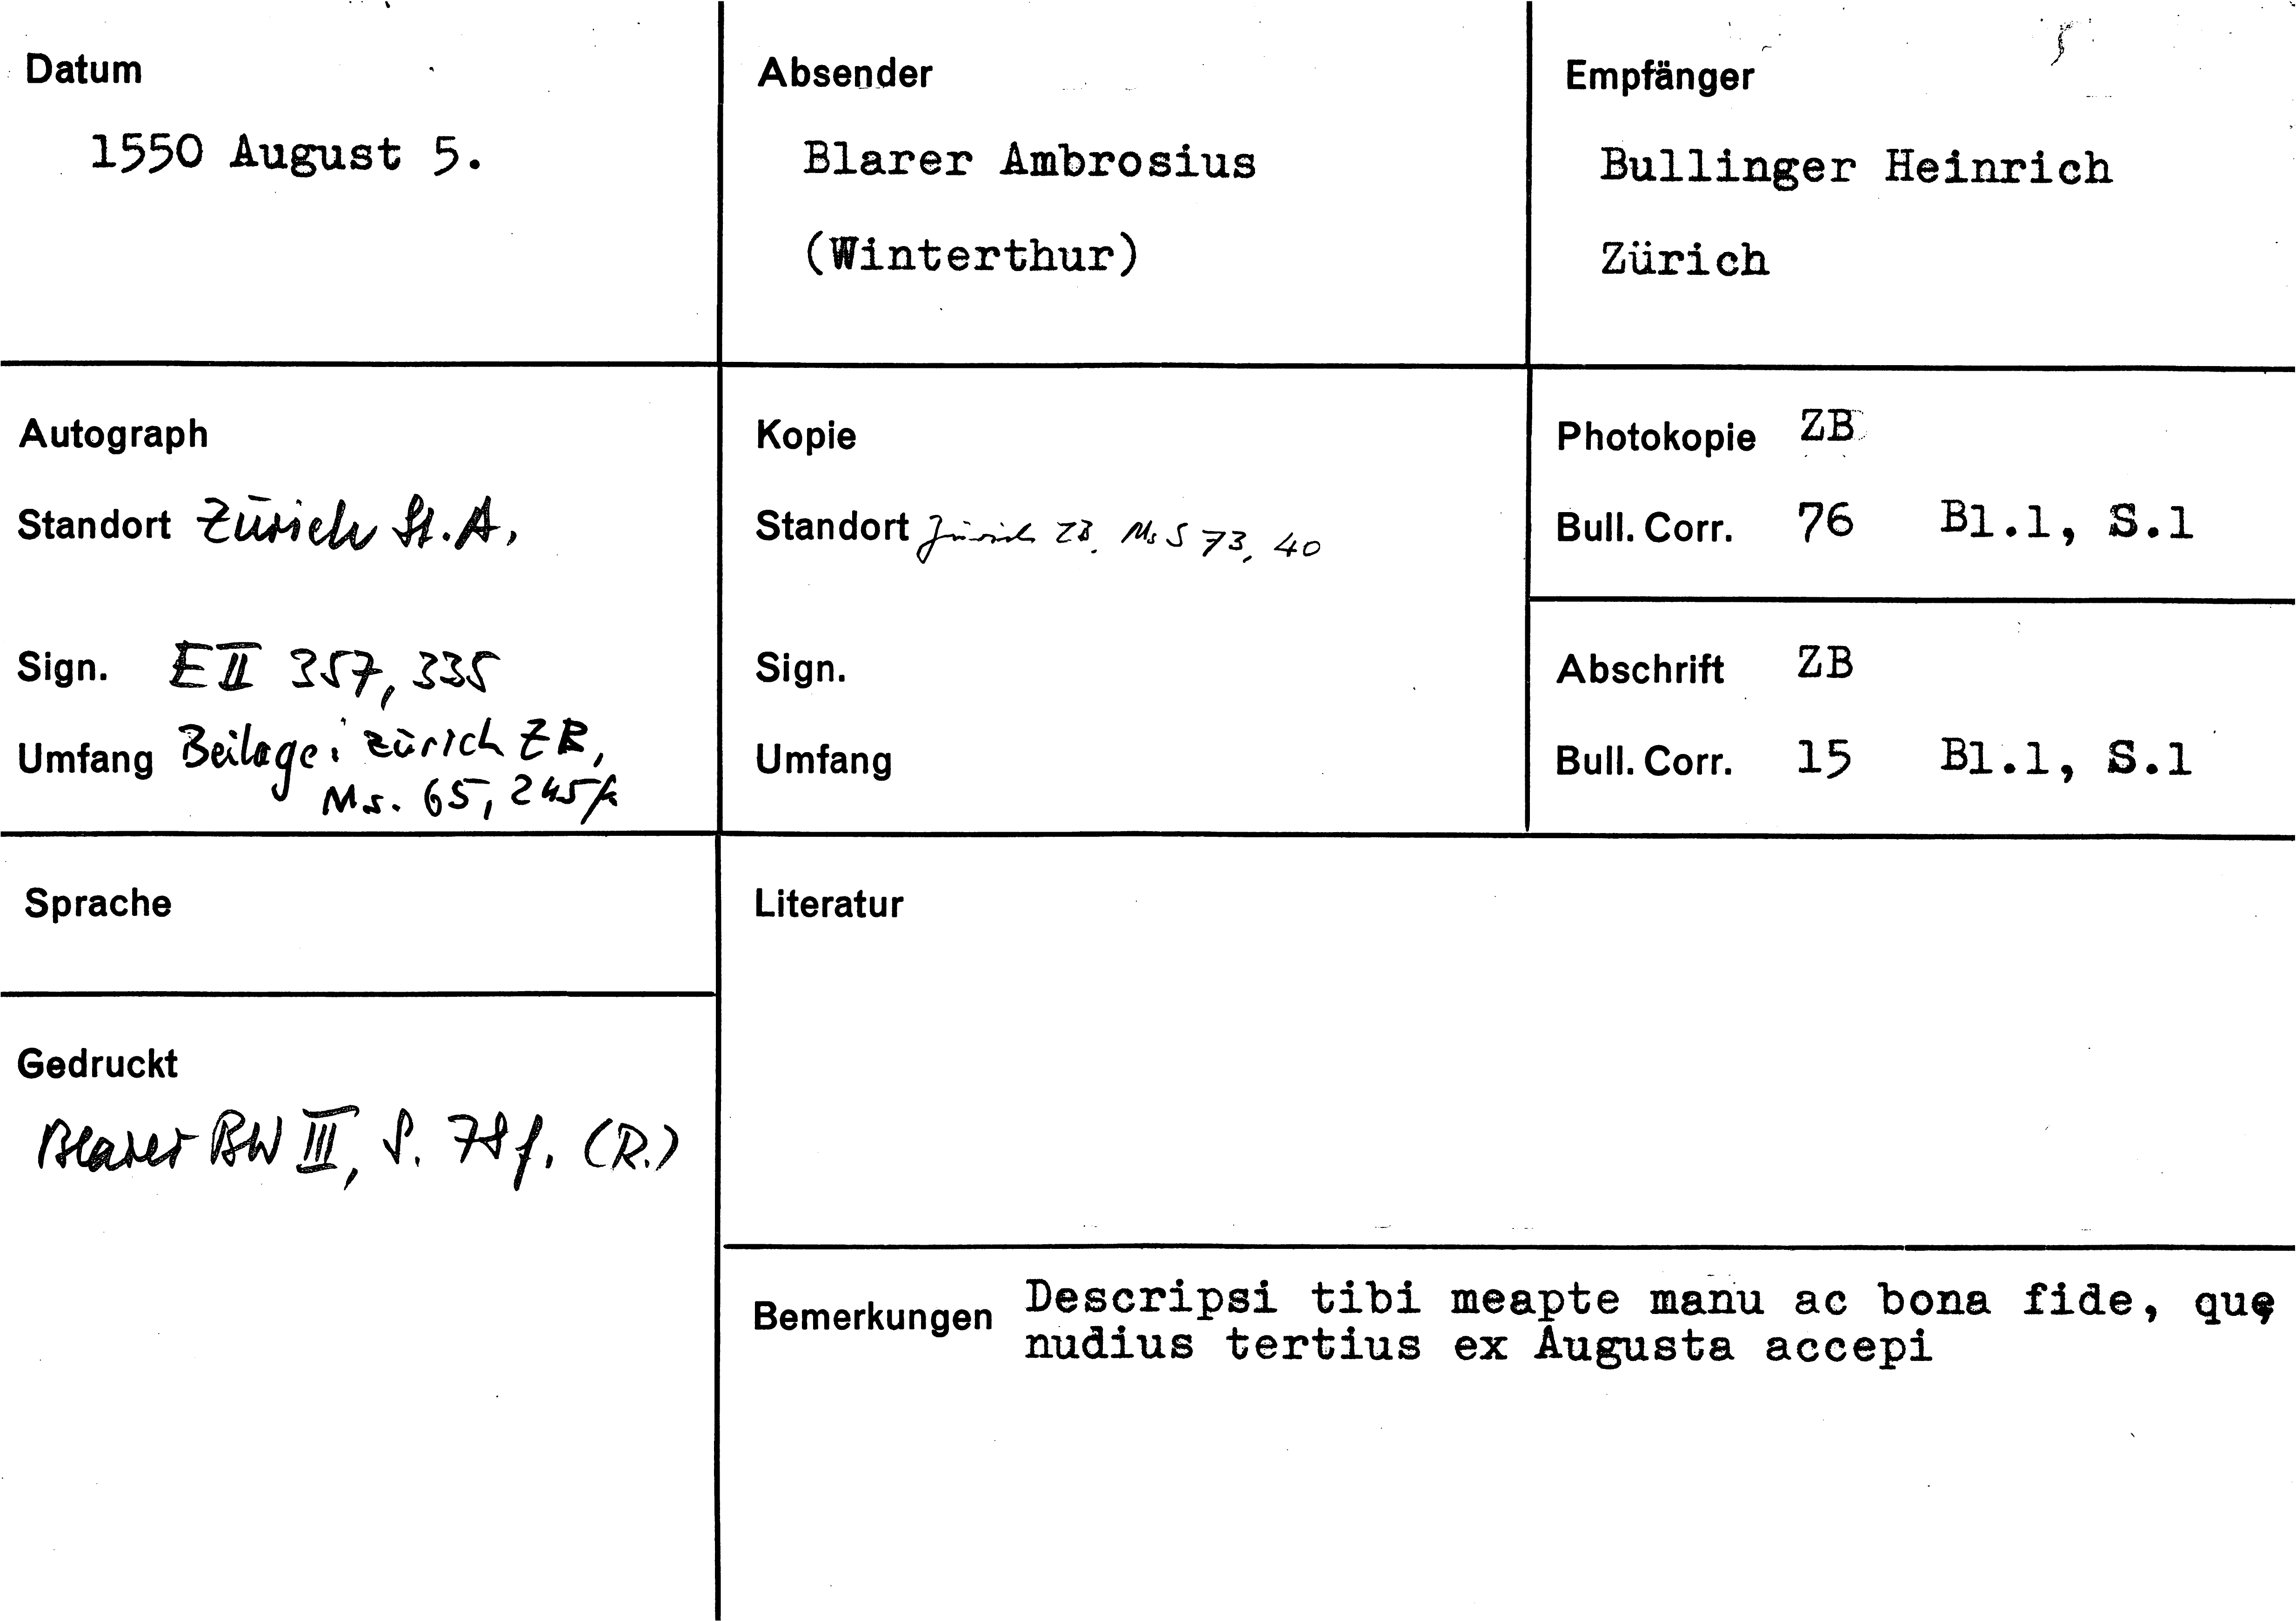 Datum
1550 August 5.
Absender
Blarer Ambrosius
(Winterthur)
Empfänger
Bullinger Heinrich
Zürich
Autograph
Standort Zürich St.A.
Sign. E II 357, 335
Umfang Beilage: Zürich ZB,
Ms. 65,
Kopie
Standort Zürich ZB, Ms S 73, 40
Sign.
Umfang
Photokopie ZB
Bull. Corr. 76 Bl.1, S.1
Abschrift ZB
Bull. Corr. 15 Bl.1, S.1
Sprache
Gedruckt
Blarer BW III, S. 78f. (R.)
Literatur
Bemerkungen Descripsi tibi meapte manu ac bona fide, quę
nudius tertius ex Augusta accepi